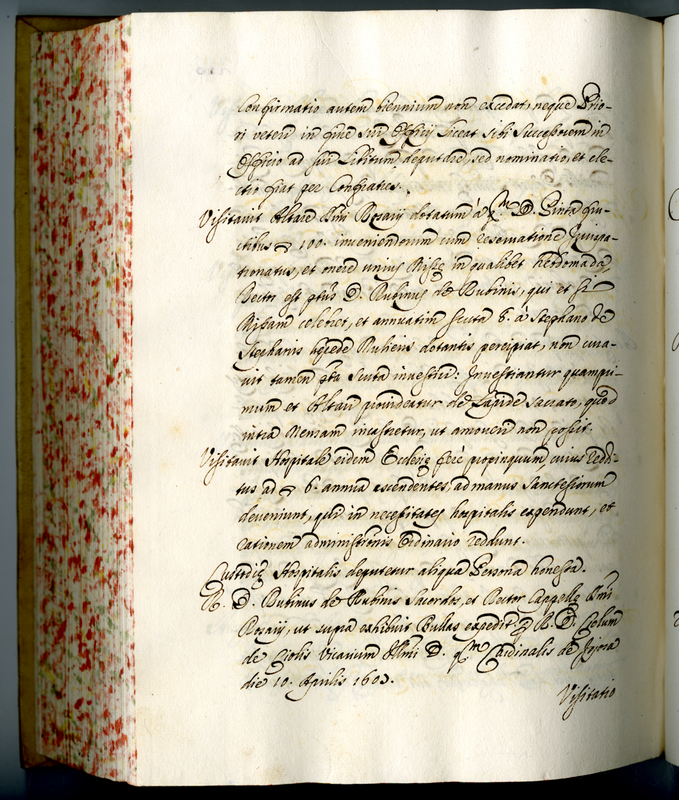 Confirmatio autem biennium non excedat, neque Prio-
ri veteri in fine sui Officij liceat sibi Successorem in
Officio ad sui Libitum deputare, sed nominatio, et ele-
ctio fiat per Confratres.
Visitavit Altare Smi Rosarij dotatum à D. fru-
ctibus 100. inveniendorum cum reservatione Jurispa-
tronatus, et onere unius Missę in qualibet hebdomada,
Rector est D. Rubinus de Rubinis, qui et
Missam celebret, et annuatim scuta 6. à Stephano de
Stephanis hęrede Mulieris dotantis percipiat, non cura-
vit tamen scuta investiri: Investiantur quampri-
mum et Altari provideatur de Lapide Sacrato, quod
intra Mensam incastretur, ut amoveri non possit.
Visitavit Hospitale eidem Ecclesię ferè propinquum, cuius reddi-
tus ad 6. annua ascendentes, ad manus Sanctesiorum
deveniunt, qui in necessitates hospitalis expendunt, et
rationem administrõnis Ordinario reddunt.
Custodię Hospitalis deputetur aliqua Persona honesta.
R. D. Rubinus de Rubinis Sacerdos, et Rector Cappellę Smi
Rosarij, ut supra exhibuit Bullas expedit. R. D. Cęlium
de Vicarium Illmi D. Cardinalis de
die 10. Aprilis 1603.
Visitatio